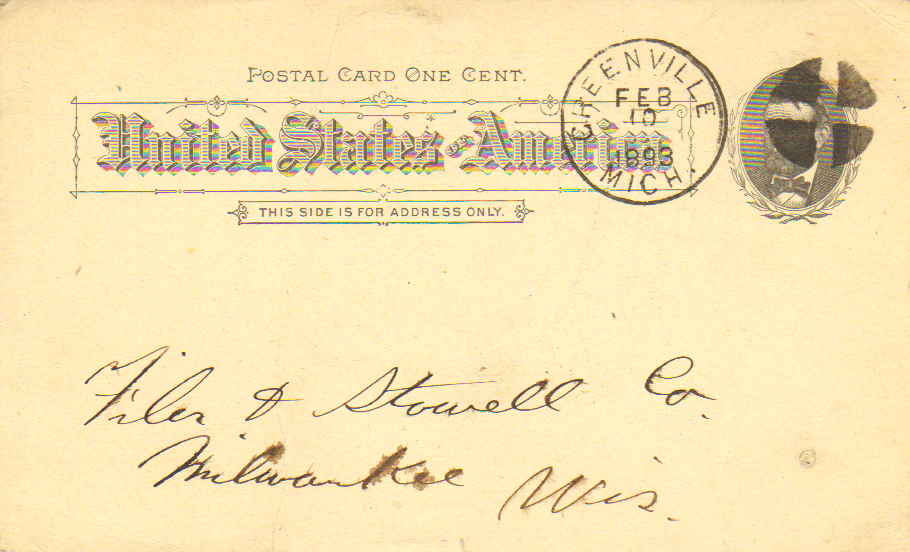 POSTAL CARD ONE CENT.
United States of America
THIS SIDE IS FOR ADDRESS ONLY.
GREENVILLE
FEB
10
1893
MICH.
Filer & Stowell Co.
Milwaukee Wis.